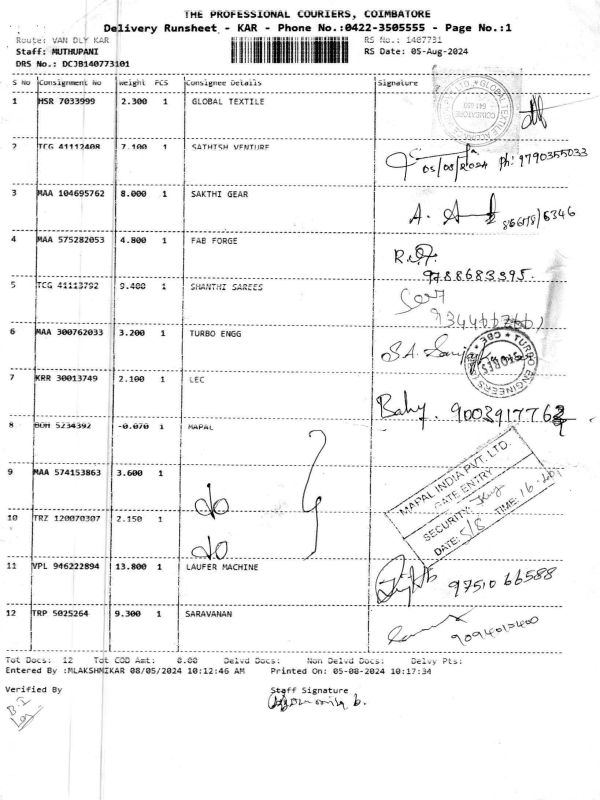 THE PROFESSIONAL COURIERS, COIMBATORE
Delivery Runsheet - KAR - Phone No.:0422-3505555 - Page No.:1
Route: VAN DLY KAR RS No.: 1407731
Staff: MUTHUPANI RS Date: 05-Aug-2024
DRS No.: DCJB140773101
S No Consignment No Weight PCS Consignee Details Signature
1 HSR 7033999 2.300 1 GLOBAL TEXTILE
2 TCG 41112408 7.100 1 SATHISH VENTURE
05/08/2024 Ph: 9790355033
3 MAA 104695762 8.000 1 SAKTHI GEAR
A.
4 MAA 575282053 4.800 1 FAB FORGE
9788683395.
5 TCG 41113792 9.400 1 SHANTHI SAREES
6 MAA 300762033 3.200 1 TURBO ENGG
S.A.
TURBO ENGINEERS CBE STORES
7 KRR 30013749 2.100 1 LEC
Baby. 900391776
8 BOM 5234392 -0.070 1 MAPAL
MAPAL INDIA PVT. LTD.
GATE ENTRY
SECURITY:
DATE: 5/8 TIME: 16.20
9 MAA 574153863 3.600 1 do
10 TRZ 120070307 2.150 1 do
11 VPL 946222894 13.800 1 LAUFER MACHINE
9751066588
12 TRP 5025264 9.300 1 SARAVANAN
9094012400
Tot Docs: 12 Tot COD Amt: 0.00 Delvd Docs: Non Delvd Docs: Delvy Pts:
Entered By :MLAKSHMIKAR 08/05/2024 10:12:46 AM Printed On: 05-08-2024 10:17:34
Verified By Staff Signature